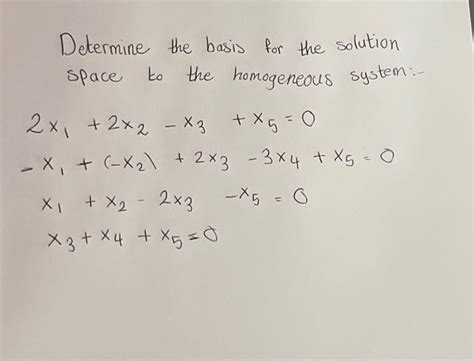 Determine the basis for the solution
space to the homogeneous system:-
2x₁ + 2x₂ - x₃ + x₅ = 0
-x₁ + (-x₂) + 2x₃ - 3x₄ + x₅ = 0
x₁ + x₂ - 2x₃ - x₅ = 0
x₃ + x₄ + x₅ = 0